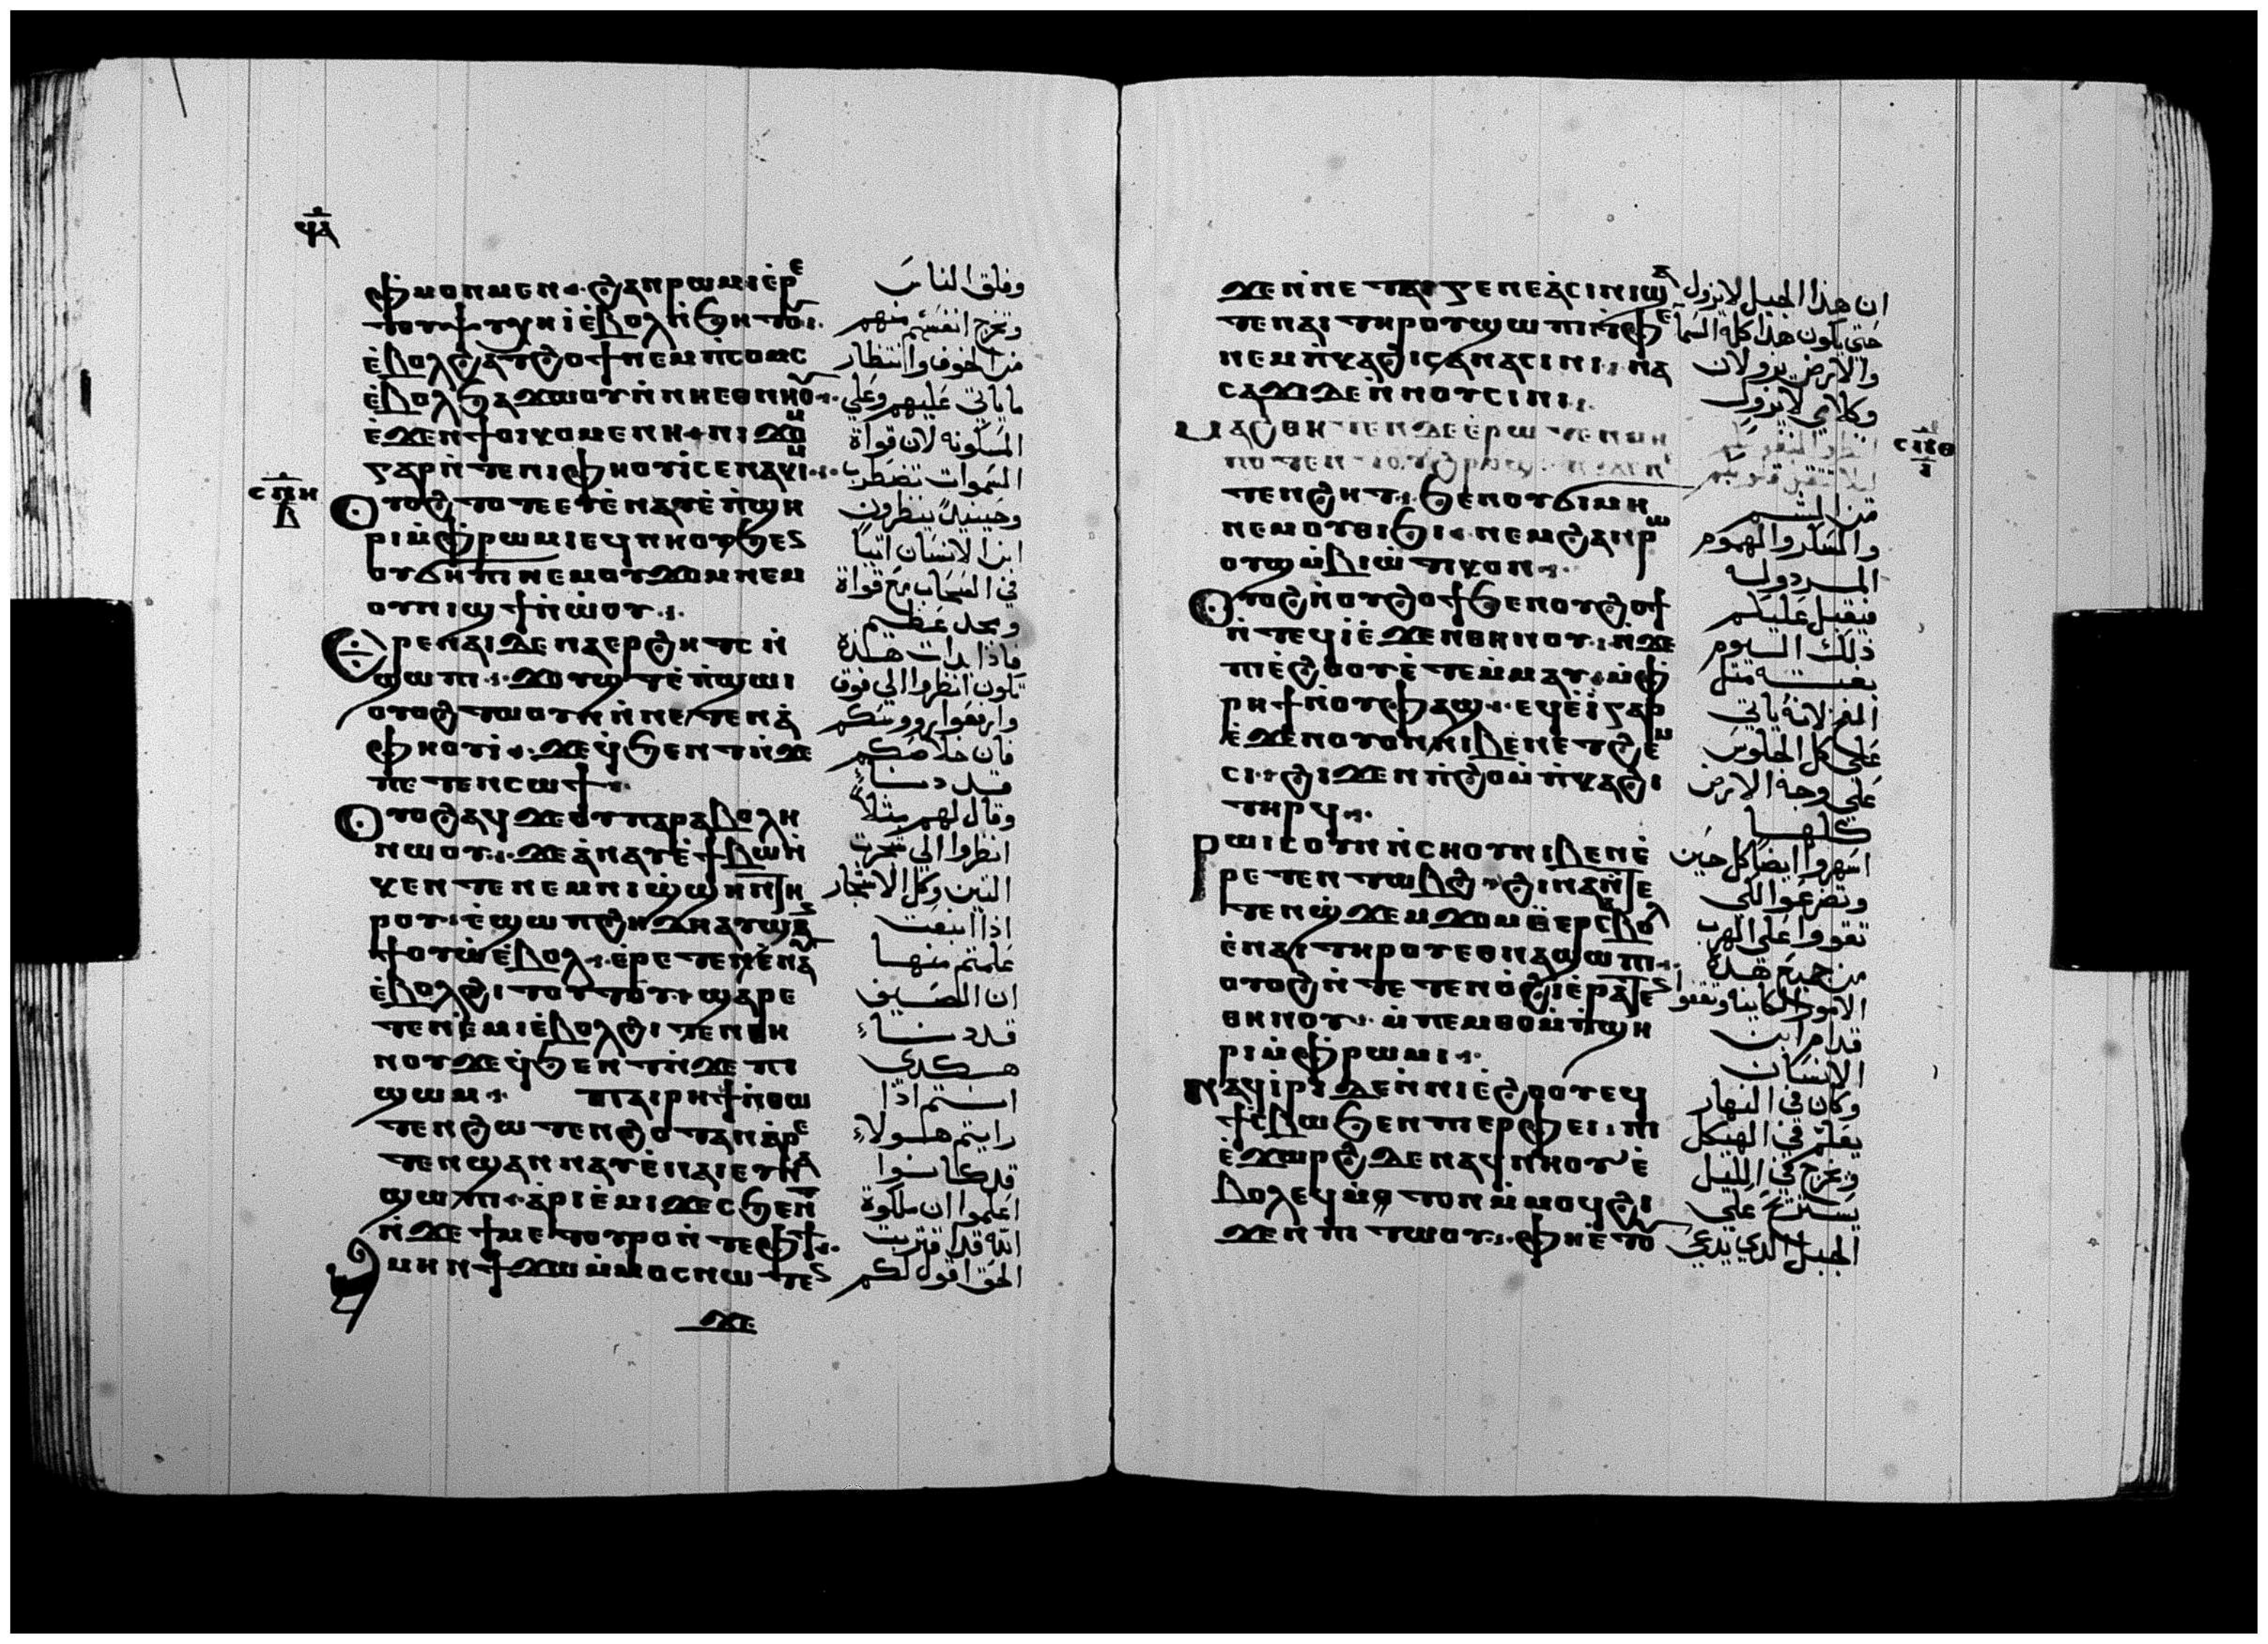 ϥⲁ
ⲫⲙⲟⲛⲙⲉⲛ ϩⲁⲛⲣⲱⲙⲓ ⲉ̇ⲣⲉ
ⲧⲟⲩϯⲯⲩⲭⲏ ⲓ̇ ⲉ̇ⲃⲟⲗ ⲛ̇ϧⲏⲧⲟⲩ
ⲉ̇ⲃⲟⲗϩⲁ ⲧϩⲟϯ ⲛⲉⲙ ⲡ̇ⲥⲟⲙⲥ
ⲉ̇ⲃⲟⲗϧⲁϫⲱⲟⲩ ⲛ̇ⲛⲏⲉⲑⲛⲏⲟⲩ
ⲉ̇ϫⲉⲛ ϯⲟⲓⲕⲟⲩⲙⲉⲛⲏ ⲛⲓϫⲟⲙ
ⲅⲁⲣ ⲛ̇ⲧⲉ ⲛⲓⲫⲏⲟⲩⲓ̇ ⲥⲉⲛⲁⲕⲓⲙ
ⲥⲡⲏ
ⲃ
ⲟⲩⲟϩ ⲧⲟⲧⲉ ⲉⲩⲉ̇ⲛⲁⲩ ⲉ̇ⲡ̇ϣⲏ
ⲣⲓ ⲙ̇ⲫⲣⲱⲙⲓ ⲉϥⲛⲏⲟⲩ ϧⲉⲛ
ⲟⲩϭⲏⲡⲓ ⲛⲉⲙ ⲟⲩϫⲟⲙ ⲛⲉⲙ
ⲟⲩⲛⲓϣϯ ⲛ̇ⲱ̇ⲟⲩ
ⲉⲣⲉ ⲛⲁⲓ ⲇⲉ ⲛⲁⲉⲣϩⲏⲧⲥ ⲛ̇
ϣⲱⲡⲓ ϫⲟⲩϣⲧ ⲉ̇ⲡ̇ϣⲱⲓ
ⲟⲩⲟϩ ⲧⲱⲟⲩⲛ ⲛ̇ⲛⲉⲧⲉⲛⲁ̇
ⲫⲏⲟⲩⲓ̇ ϫⲉ ϥ̇ϧⲉⲛⲧ ⲛ̇ϫⲉ
ⲡⲉⲧⲉⲛⲥⲱϯ
ⲟⲩⲟϩ ⲁϥϫⲉ ⲟⲩⲡⲁⲣⲁⲃⲟⲗⲏ
ⲛⲱⲟⲩ ϫⲉ ⲁ̇ⲛⲁⲩ ⲉ̇ϯⲃⲱⲛ̇
ⲕⲉⲛⲧⲉ ⲛⲉⲙ ⲛⲓϣ̇ϣⲏⲛ ⲧⲏ
ⲣⲟⲩ ⲉ̇ϣⲱⲡ ϩⲏⲇⲏ ⲁⲩϣⲁⲛ
ϯⲟⲩⲱ̇ ⲉ̇ⲃⲟⲗ ⲉ̇ⲣⲉⲧⲉⲛⲉ̇ⲛⲁⲩ
ⲉ̇ⲃⲟⲗϩⲓⲧⲟⲧⲟⲩ ϣⲁⲣⲉ
ⲧⲉⲛⲉ̇ⲙⲓ ⲉ̇ⲃⲟⲗϩⲓⲧⲉⲛ ⲑⲏ
ⲛⲟⲩ ϫⲉ ϥ̇ϧⲉⲛⲧ ⲛ̇ϫⲉ ⲡⲓ
ϣⲱⲙ ⲡⲁⲓⲣⲏϯ ⲛ̇ⲑⲱ
ⲧⲉⲛ ϩⲱⲧⲉⲛ ϩⲟⲧⲁⲛ ⲁ̇ⲣⲉ
ⲧⲉⲛϣⲁⲛⲛⲁⲩ ⲉ̇ⲛⲁⲓ ⲉⲩⲛⲁ
ϣⲱⲡⲓ ⲁ̇ⲣⲓⲉ̇ⲙⲓ ϫⲉ ⲥϧⲉⲛⲧ
ⲛ̇ϫⲉ ϯⲙⲉⲧⲟⲩⲣⲟ ⲛ̇ⲧⲉ ⲫϯ
ⲁⲙⲏⲛ ϯϫⲱ ⲙ̇ⲙⲟⲥ ⲛⲱⲧⲉⲛ
ϫⲉ
وقلق الناس
وتخرج انفسهم منهم
من الخوف وانتظار
ما ياتي عليهم وعلي
المسكونه لان قواة
السموات تضطرب
وحينيدٍ ينظرون
ابن الانسان اتيًا
في السحاب مع قواة
ومجد عظيم
فاذا بدات هذه
تكون انظروا الي فوق
وارفعوا رووسكم
فان خلاصكم
قد دنا
وقال لهم مثلاً
انظروا الي شجرت
التين وكل الاشجار
اذا اينعت
علمتم منها
ان الصيف
قد دنا
هكدى
انتم اذا
رايتم هولاء
قد كانوا
اعلموا ان ملكوة
الله قد اقتربت
الحق اقول لكم
ϫⲉ ⲛ̇ⲛⲉ ⲧⲁⲓⲅⲉⲛⲉⲁ̇ ⲥⲓⲛⲓ ϣⲁ
ⲧⲉ ⲛⲁⲓ ⲧⲏⲣⲟⲩ ϣⲱⲡⲓ ⲧ̇ⲫⲉ
ⲛⲉⲙ ⲡ̇ⲕⲁϩⲓ ⲥⲁⲛⲁⲥⲓⲛⲓ ⲛⲁ
ⲥⲁϫⲓ ⲇⲉ ⲛ̇ⲛⲟⲩⲥⲓⲛⲓ
ⲥⲡⲑ
ⲓ
ⲙⲁϩⲑⲏⲧⲉⲛ ⲇⲉ ⲉ̇ⲣⲱⲧⲉⲛ ⲙⲏ
ⲡⲟⲧⲉ
ⲧⲉⲛϩⲏⲧ ϧⲉⲛ ⲟⲩϭⲓⲙⲏ
ⲛⲉⲙ ⲟⲩⲑⲓϧⲓ ⲛⲉⲙ ϩⲁⲛⲣⲱ
ⲟⲩϣ ⲙ̇ⲃⲓⲱⲧⲓⲕⲟⲛ
ⲟⲩⲟϩ ⲛ̇ⲟⲩϩⲟϯ ϧⲉⲛ ⲟⲩϩⲟϯ
ⲛ̇ⲧⲉϥⲓ̇ ⲉ̇ϫⲉⲛ ⲑⲏⲛⲟⲩ ⲛ̇ϫⲉ
ⲡⲓⲉ̇ϩⲟⲟⲩ ⲉ̇ⲧⲉⲙ̇ⲙⲁⲩ ⲙ̇ⲫ
ⲣⲏϯ ⲛ̇ⲟⲩⲫⲁϣ ⲉϥⲉ̇ⲓ̇ ⲅⲁⲣ
ⲉ̇ϫⲉⲛ ⲟⲩⲟⲛ ⲛⲓⲃⲉⲛ ⲉⲧϩⲉⲙ
ⲥⲓ ϩⲓϫⲉⲛ ⲡ̇ϩⲟ ⲙ̇ⲡ̇ⲕⲁϩⲓ
ⲧⲏⲣϥ
ⲣⲱⲓⲥ ⲟⲩⲛ ⲛ̇ⲥⲏⲟⲩ ⲛⲓⲃⲉⲛ ⲉ̇
ⲣⲉⲧⲉⲛⲧⲱⲃϩ ϩⲓⲛⲁ ⲛ̇ⲧⲉ
ⲧⲉⲛϣ̇ϫⲉⲙϫⲟⲙ ⲉ̇ⲉⲣⲉ̇ⲃⲟⲗ
ⲉ̇ⲛⲁⲓ ⲧⲏⲣⲟⲩ ⲉⲑⲛⲁϣⲱⲡⲓ
ⲟⲩⲟϩ ⲛ̇ⲧⲉⲧⲉⲛⲟ̇ϩⲓ ⲉ̇ⲣⲁⲧⲉⲛ
ⲑⲏⲛⲟⲩ ⲙ̇ⲡⲉⲙⲑⲟ ⲙ̇ⲡ̇ϣⲏ
ⲣⲓ ⲙ̇ⲫⲣⲱⲙⲓ
ⲛⲁϥⲓ̇ⲣⲓ ⲇⲉ ⲛ̇ⲛⲓⲉ̇ϩⲟⲟⲩ ⲉϥ
ϯⲥ̇ⲃⲱ ϧⲉⲛ ⲡⲓⲉⲣⲫⲉⲓ ⲡⲓ
ⲉ̇ϫⲱⲣϩ ⲇⲉ ⲛⲁϥⲛⲏⲟⲩ ⲉ̇
ⲃⲟⲗ ⲉϥⲙ̇ⲧⲟⲛ ⲙ̇ⲙⲟϥ ϩⲓ
ϫⲉⲛ ⲡⲓⲧⲱⲟⲩ ⲫⲏⲉ̇ⲧⲟⲩ
ان هذا الجيل لا يزول
حتي يكون هذا كله السما
والارض يزولان
وكلامي لا يزول
ليلا تثقل قلوبكم
من الشبع
والسكر والهموم
فيقبل عليكم
ذلك اليوم
بغتة مثل
الفخ لانه ياتي
علي كل الجلوس
علي وجه الارض
كلها
اسهروا ايضا كل حين
وتضرعوا لكي
تقووا علي الهرب
من جميع هذه
الامور الكاينه وتقفوا
قدام ابن
الانسان
وكان في النهار
يعلم في الهيكل
وتخرج في الليل
يستريح علي
الجبل الذي يدعي